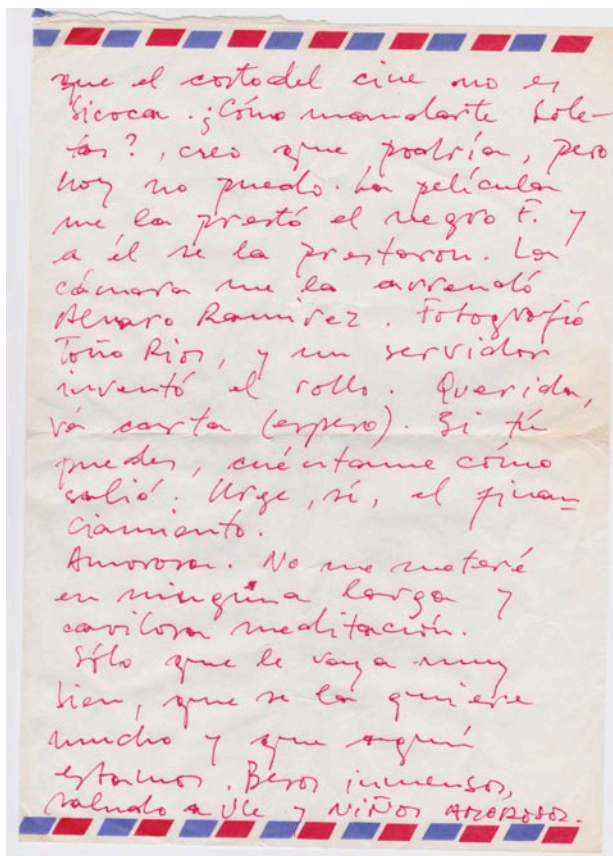 que el costo del cine no es
sicoca. ¿Cómo mandarte Sole-
tas?, creo que podría, pero
hoy no puedo. La película
me la prestó el negro F. y
a él se la prestaron. La
cámara me la arrendó
Alvaro Ramirez. Fotografió
Toño Rios, y un servidor
inventó el rollo. Querida,
vá carta (espero). Si tú
puedes, cuéntame cómo
salió. Urge, sí, el finan-
ciamiento.
Amorosa. No me meteré
en ninguna larga y
cavilosa meditación.
Sólo que le vaya muy
bien, que se la quiere
mucho y que aquí
estamos. Besos inmensos,
saludo a Ule y NIÑOS AMOROSOS.